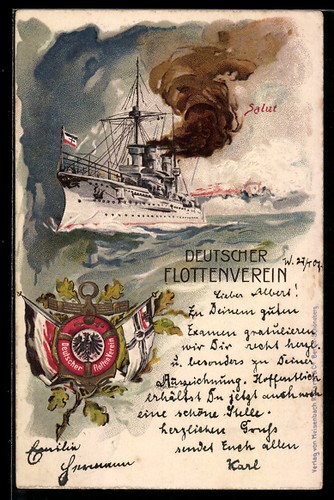 Salut
DEUTSCHER
FLOTTENVEREIN
W. 27/I 07.
Lieber Albert!
Zu Deinem guten
Examen gratulieren
wir Dir recht herzl.
u. besonders zu Deiner
Auszeichnung. Hoffentlich
erhältst Du jetzt auch noch
eine schöne Stelle.
herzlichen Gruß
sendet Euch allen
Karl
Emilie
Hermann
Deutscher Flotten Verein
Verlag von Meisenbach